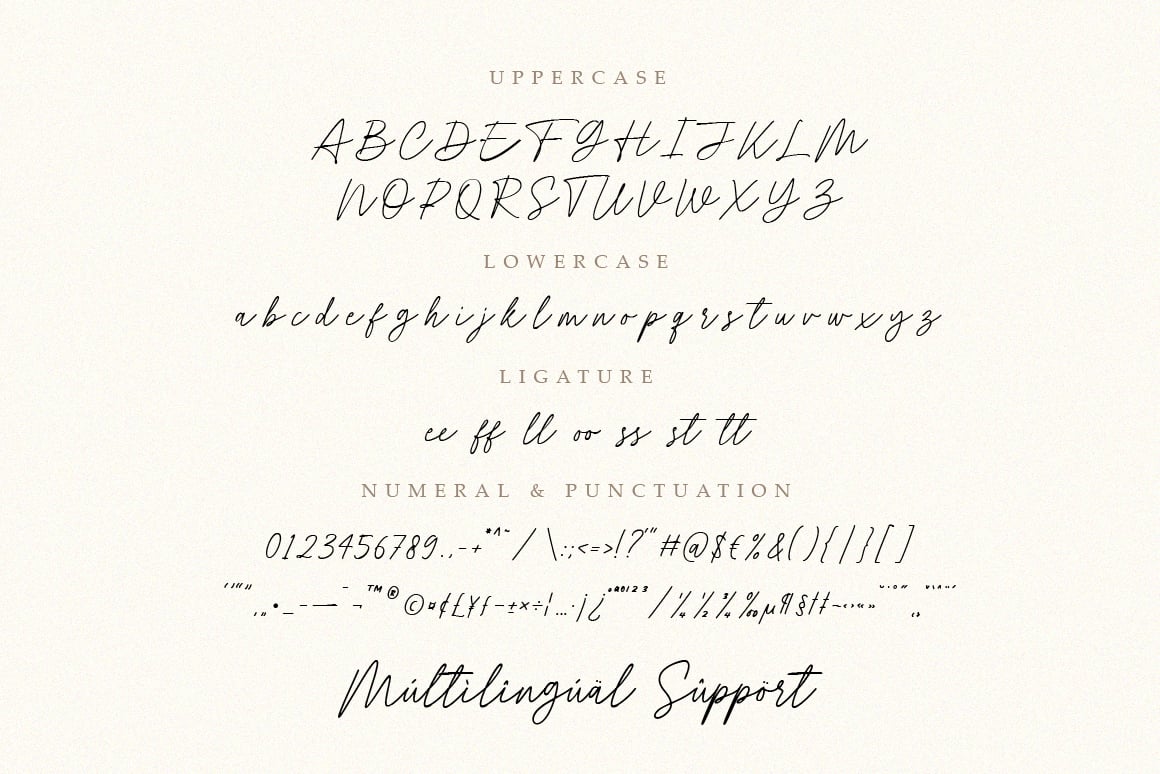 UPPERCASE
ABCDEFGHIJKLM
NOPQRSTUVWXYZ
LOWERCASE
abcdefghijklmnopqrstuvwxyz
LIGATURE
ee ff ll oo ss st tt
NUMERAL & PUNCTUATION
0123456789.,-+*^~/\:;<=>!?'"#@$€%&(){|}[]
‘’“”‚„•_–—¯¬™®©¤¢£¥ƒ−±×÷¦…·¡¿ºª⁰¹²³/¼½¾‰µ¶§†‡~‹›«»
Múltìlîngúäl Sûppört